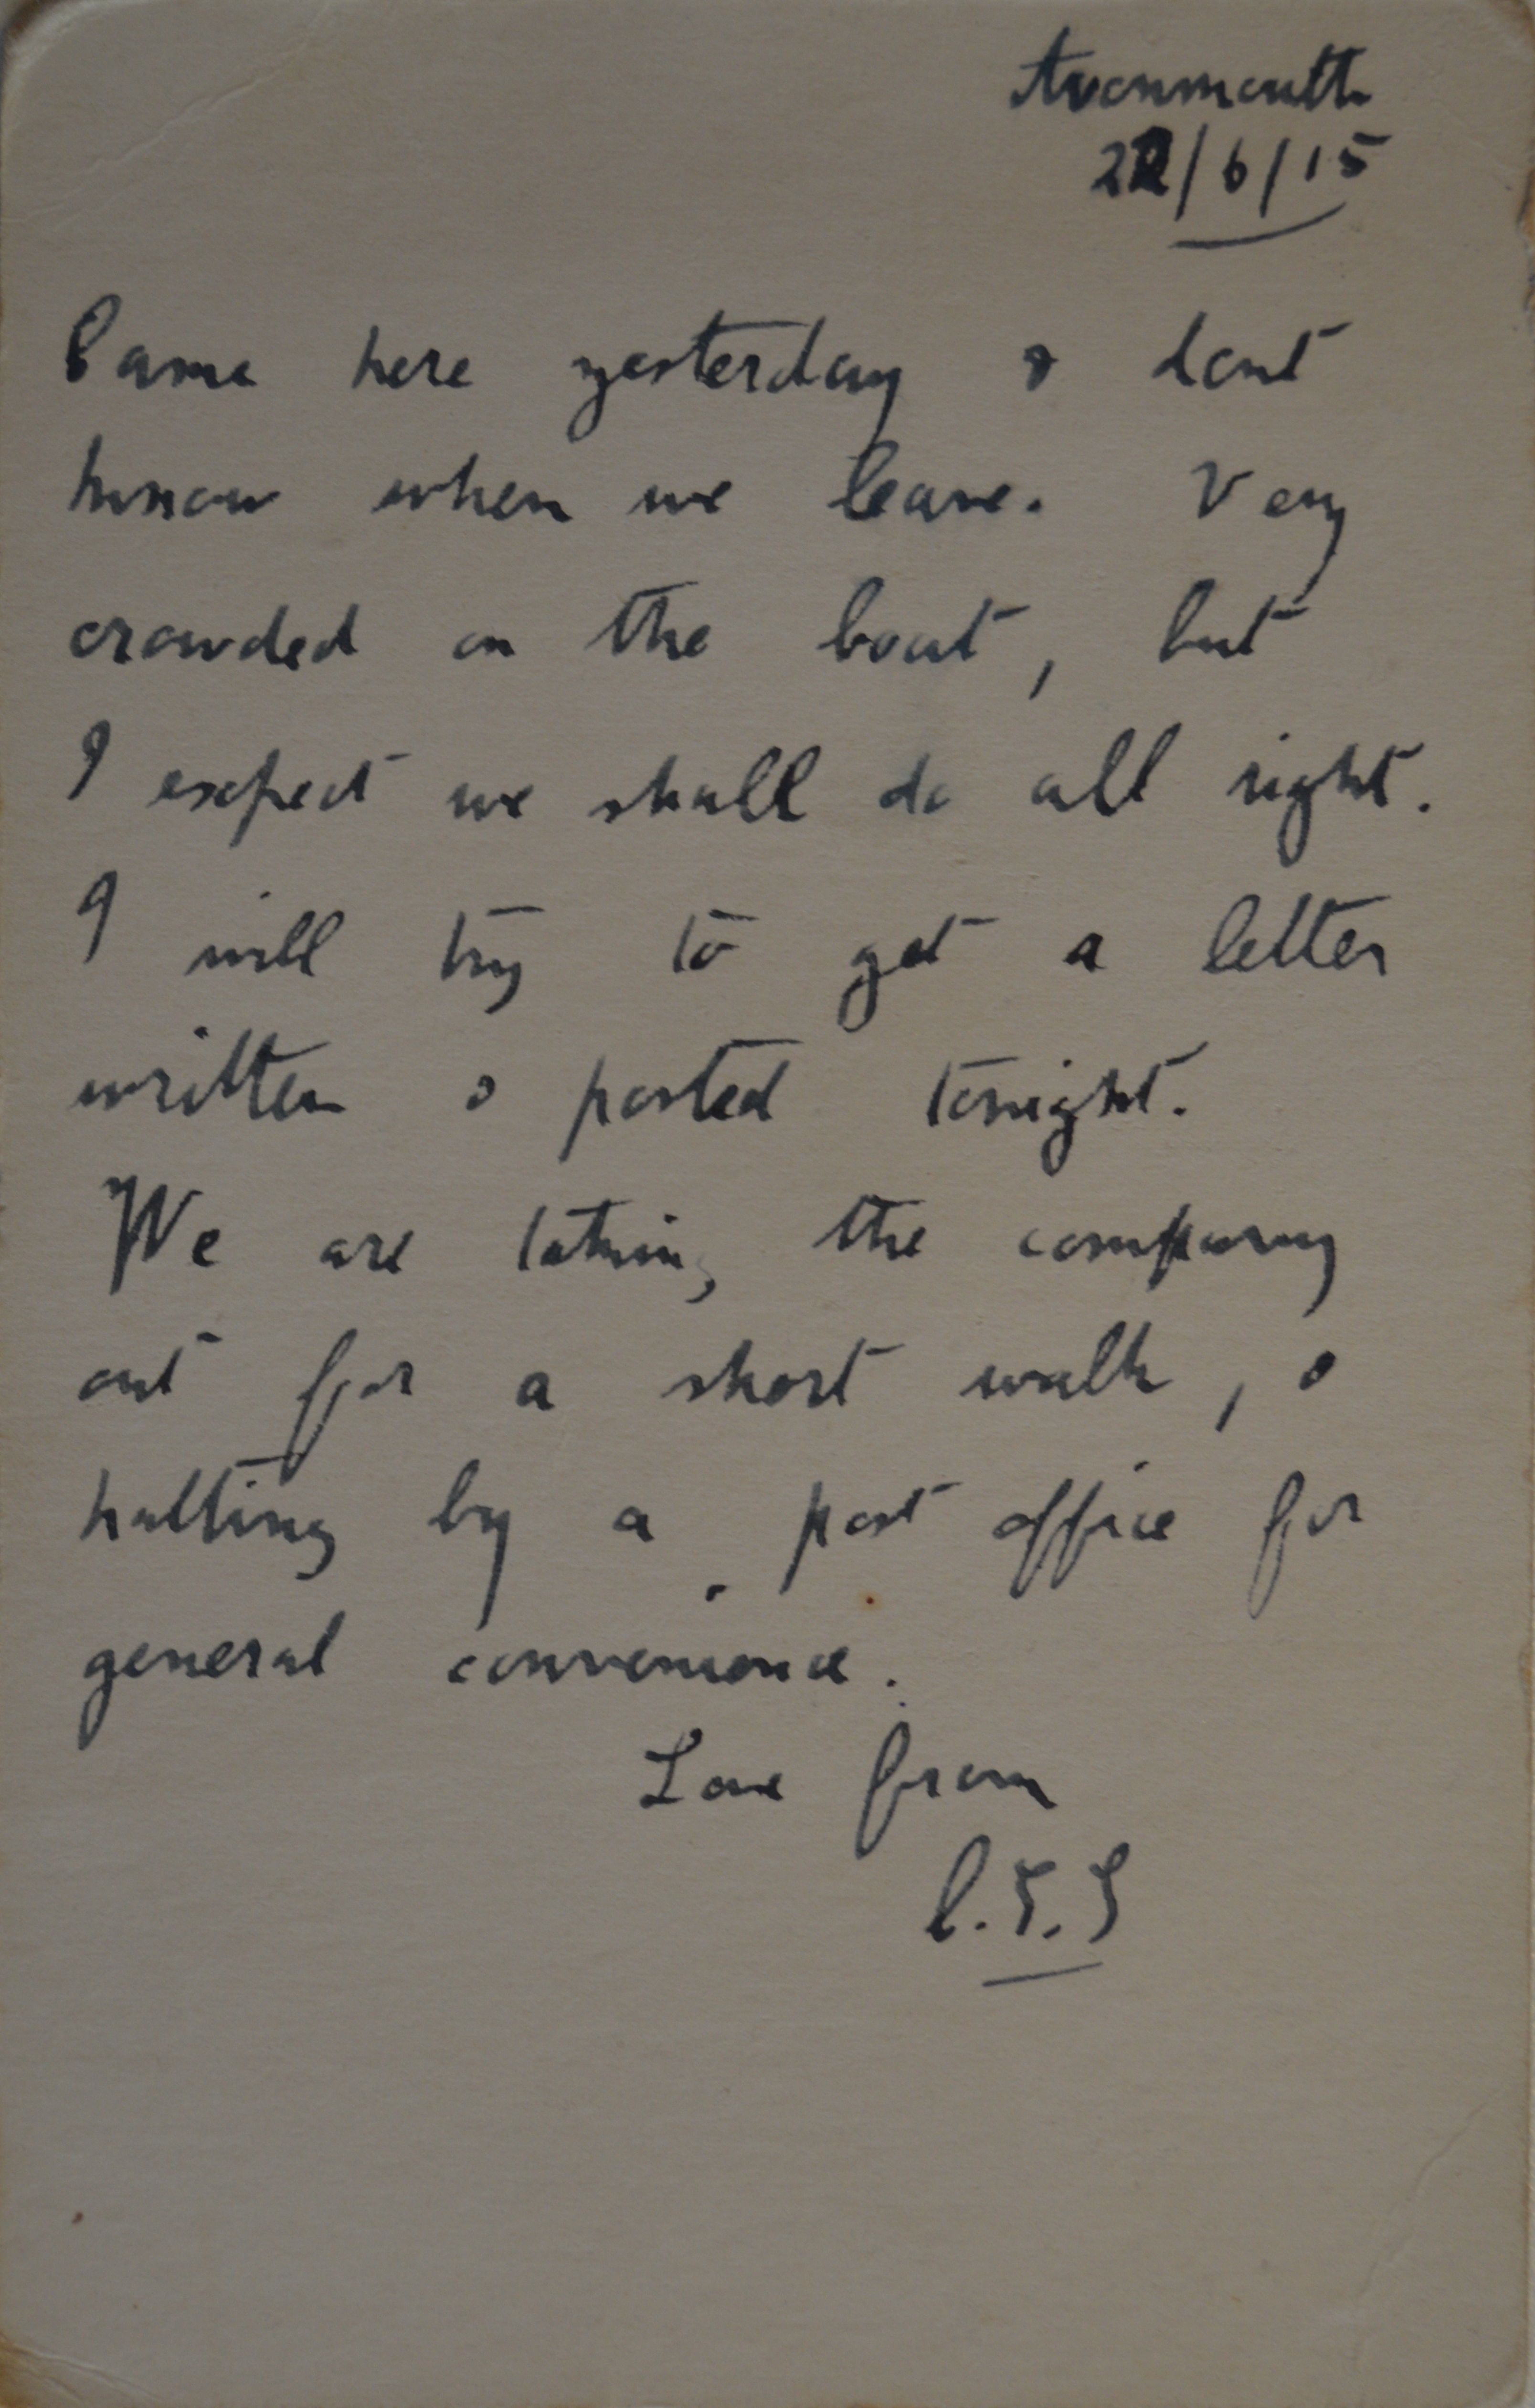 Avonmouth
22/6/15
Came here yesterday & dont
know when we leave. Very
crowded on the boat, but
I expect we shall do all right.
I will try to get a letter
written & posted tonight.
We are taking the company
out for a short walk, &
halting by a post office for
general convenience.
Love from